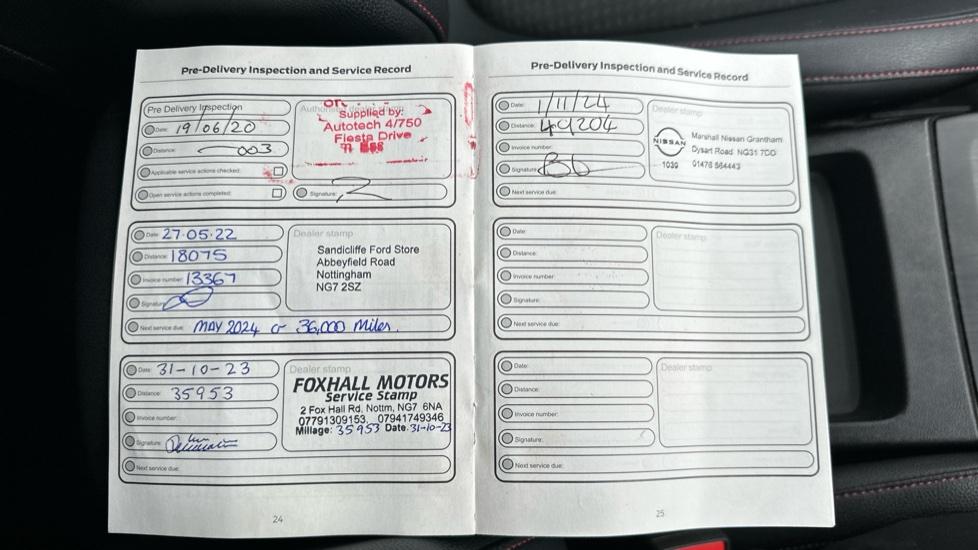 Pre-Delivery Inspection and Service Record
Pre Delivery Inspection
Date: 19/06/20
Distance: 003
Applicable service actions checked:
Open service actions completed:
Supplied by:
Autotech 4/750
Fiesta Drive
Signature:
Date: 27.05.22
Distance: 18075
Invoice number: 13367
Signature:
Next service due: MAY 2024 or 36,000 Miles.
Dealer stamp
Sandicliffe Ford Store
Abbeyfield Road
Nottingham
NG7 2SZ
Date: 31-10-23
Distance: 35953
Invoice number:
Signature:
Next service due:
Dealer stamp
FOXHALL MOTORS
Service Stamp
2 Fox Hall Rd. Nottm, NG7 6NA
07791309153, 07941749346
Millage: 35953 Date 31-10-23
24
Pre-Delivery Inspection and Service Record
Date: 1/11/24
Distance: 40204
Invoice number:
Signature:
Next service due:
Dealer stamp
NISSAN
1039
Marshall Nissan Grantham
Dysart Road NG31 7DD
01476 564443
Date:
Distance:
Invoice number:
Signature:
Next service due:
Dealer stamp
Date:
Distance:
Invoice number:
Signature:
Next service due:
Dealer stamp
25